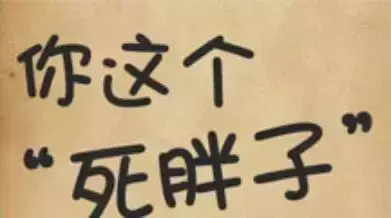 你这个
“死胖子”